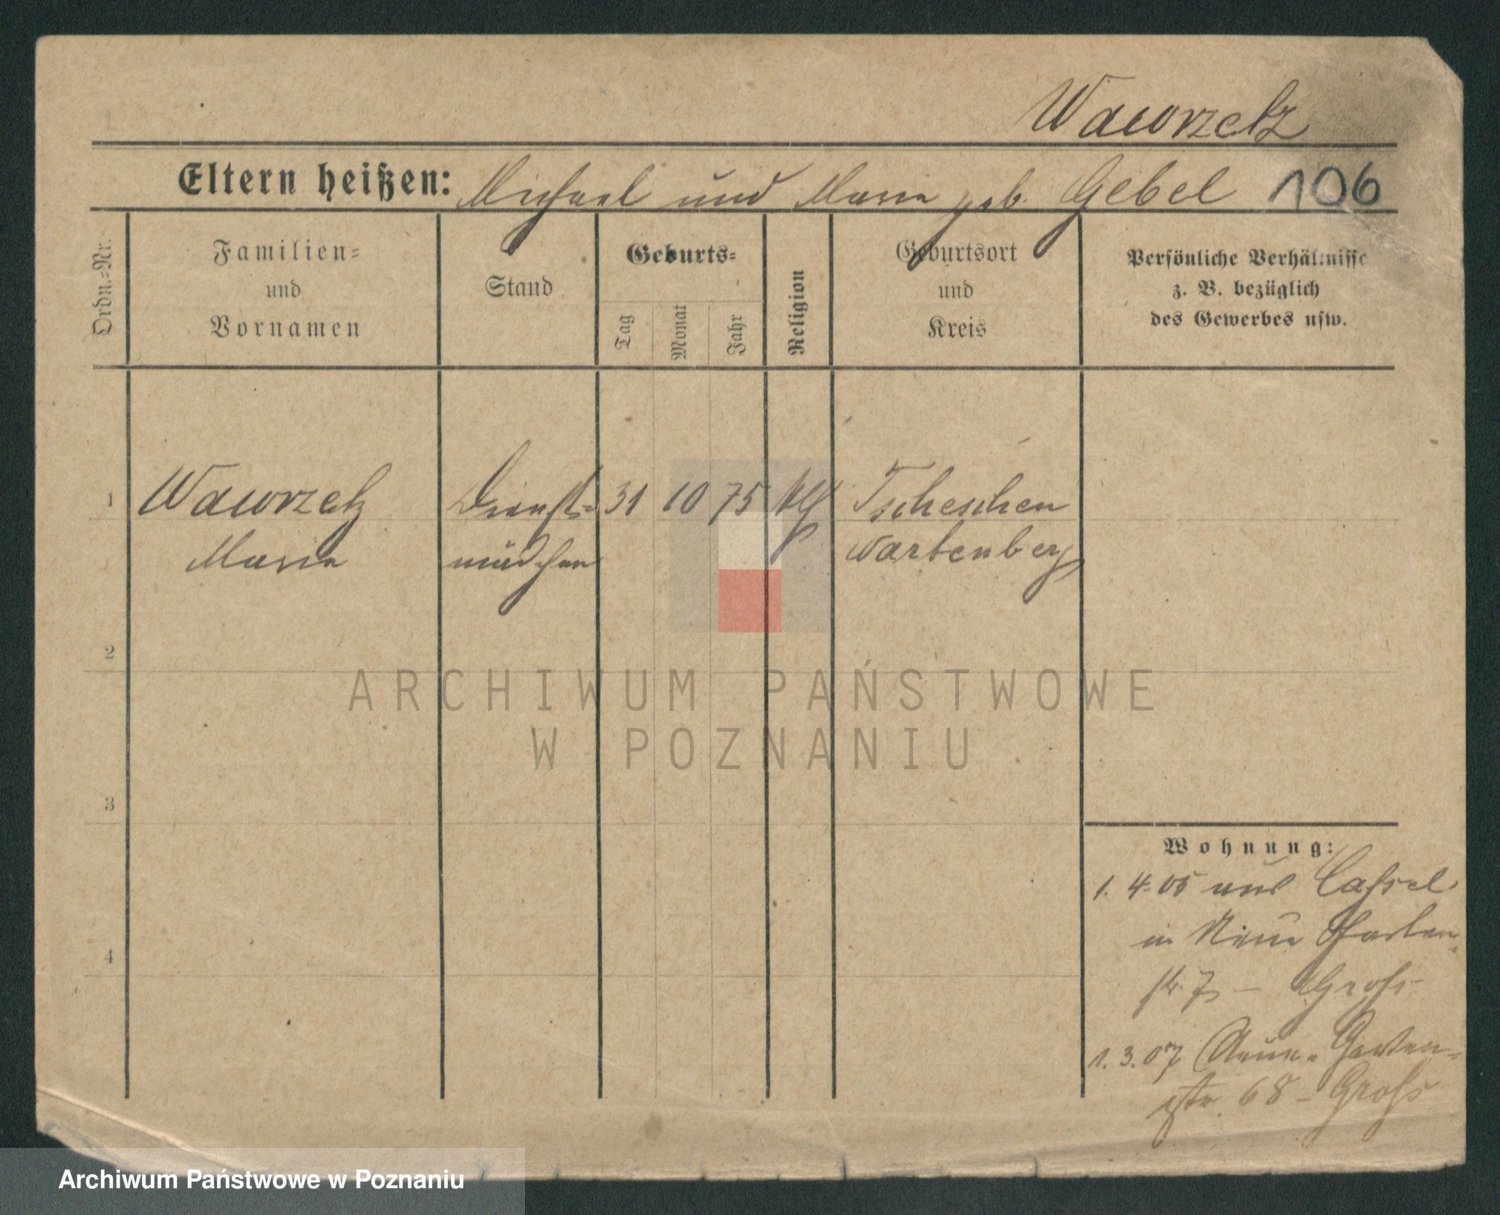 Wawrzetz
Eltern heißen: Michael und Maria geb. Gebel 106
Ordn.=Nr.
Familien=
und
Vornamen
Stand
Geburts=
Tag
Monat
Jahr
Religion
Geburtsort
und
Kreis
Persönliche Verhältnisse
z. B. bezüglich
des Gewerbes usw.
1 Wawrzetz Dienst= 31 10 75 Tscheschen
Maria mädchen Wartenberg
2
3
4
ARCHIWUM PAŃSTWOWE
W POZNANIU
Wohnung:
1. 4. 05 aus Cassel
in Neue Garten=
str. 7 – Gross
1. 3. 07 Neue Garten=
str. 68 – Gross
Archiwum Państwowe w Poznaniu